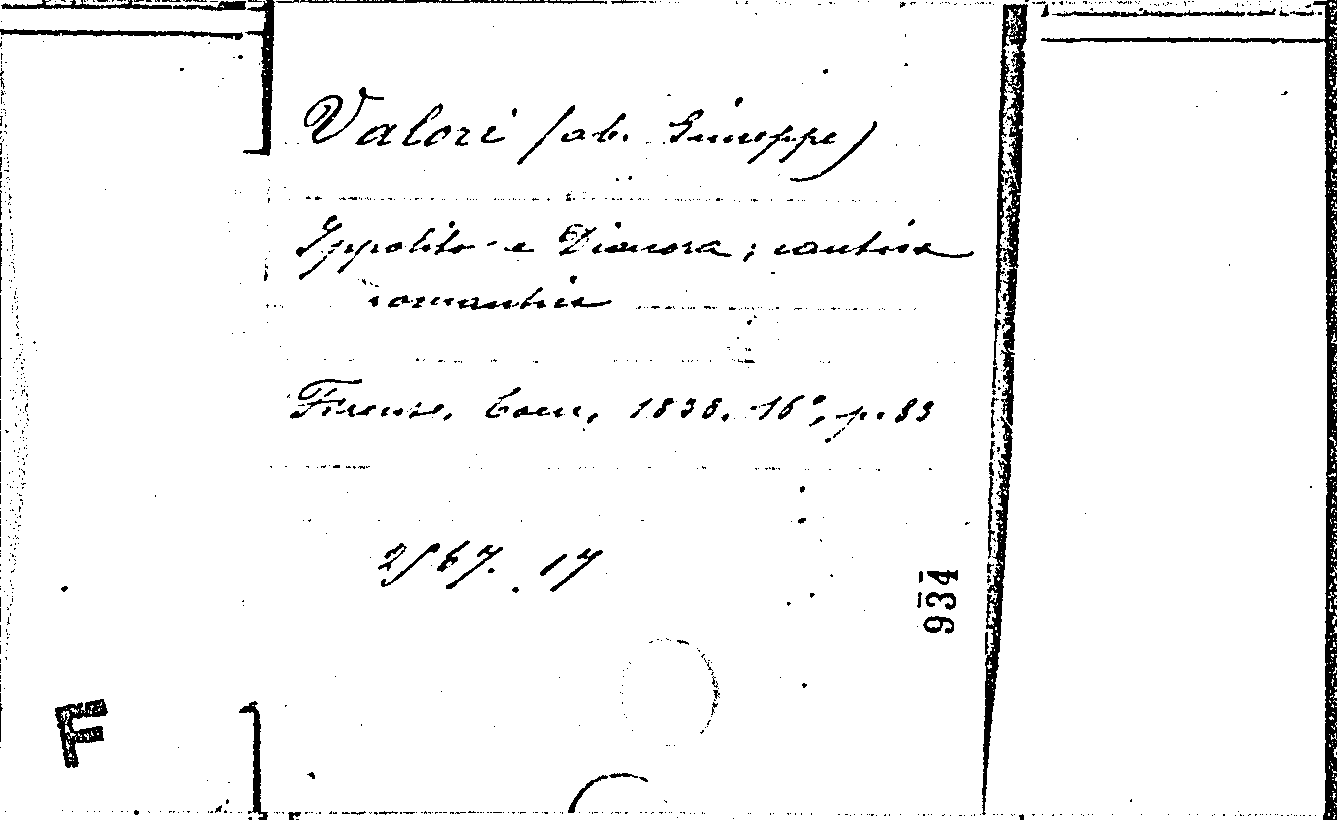 Valori (ab. Giuseppe)
Ippolito e Dianora; cantica
romantica
Firenze, Coen, 1838. 16°, p. 83
2567. 17
934
F